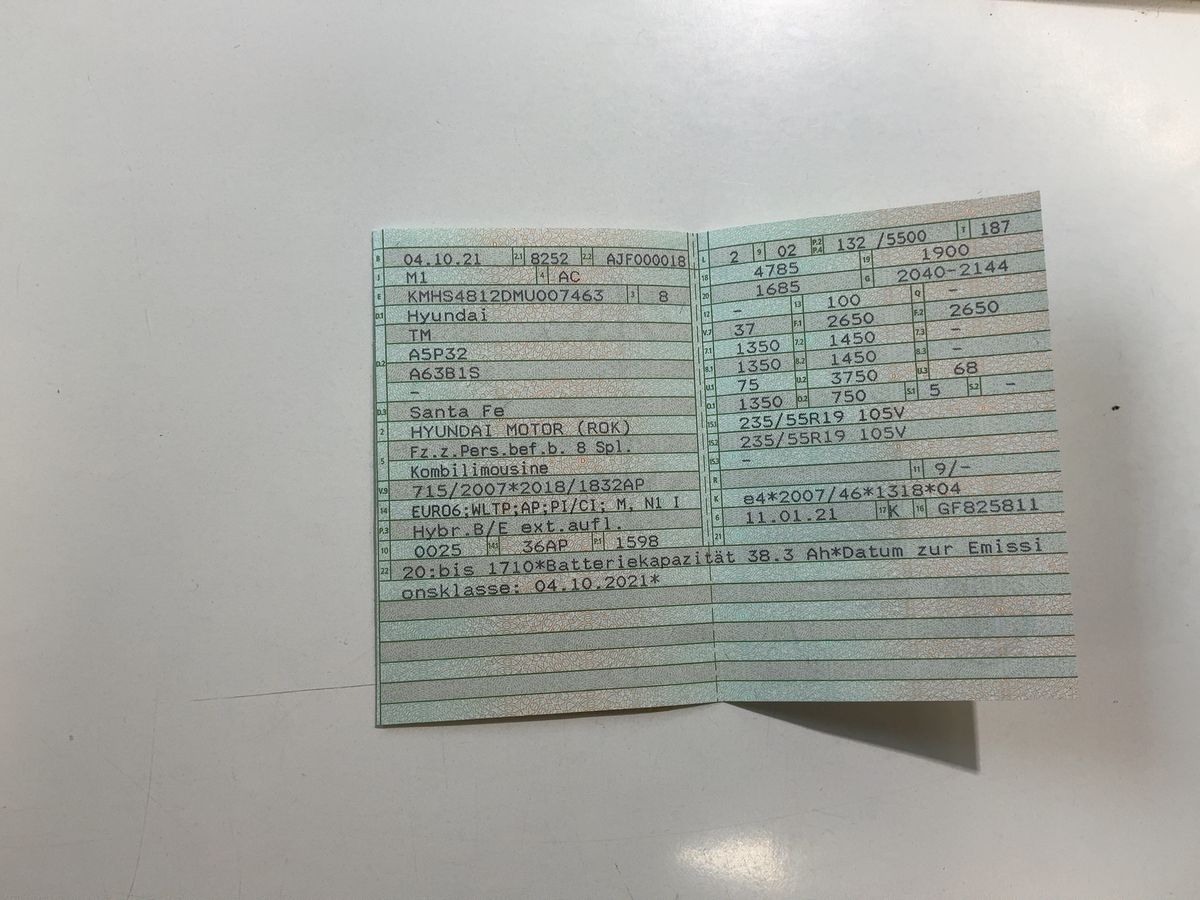 B 04.10.21 2.1 8252 2.2 AJF000018
J M1 4 AC
E KMHS4812DMU007463 3 8
D.1 Hyundai
TM
D.2 A5P32
A63B1S
-
D.3 Santa Fe
2 HYUNDAI MOTOR (ROK)
Fz.z.Pers.bef.b. 8 Spl.
5 Kombilimousine
V.9 715/2007*2018/1832AP
14 EURO6;WLTP;AP;PI/CI; M, N1 I
P.3 Hybr.B/E ext.aufl.
10 0025 14.1 36AP P.1 1598
L 2 9 02 P.2 P.4 132 /5500 T 187
18 4785 19 1900
20 1685 G 2040-2144
12 - 13 100 Q -
V.7 37 F.1 2650 F.2 2650
7.1 1350 7.2 1450 7.3 -
8.1 1350 8.2 1450 8.3 -
U.1 75 U.2 3750 U.3 68
O.1 1350 O.2 750 S.1 5 S.2 -
15.1 235/55R19 105V
15.2 235/55R19 105V
15.3 -
R 11 9/-
K e4*2007/46*1318*04
6 11.01.21 17 K 16 GF825811
21
22 20:bis 1710*Batteriekapazität 38.3 Ah*Datum zur Emissi
onsklasse: 04.10.2021*